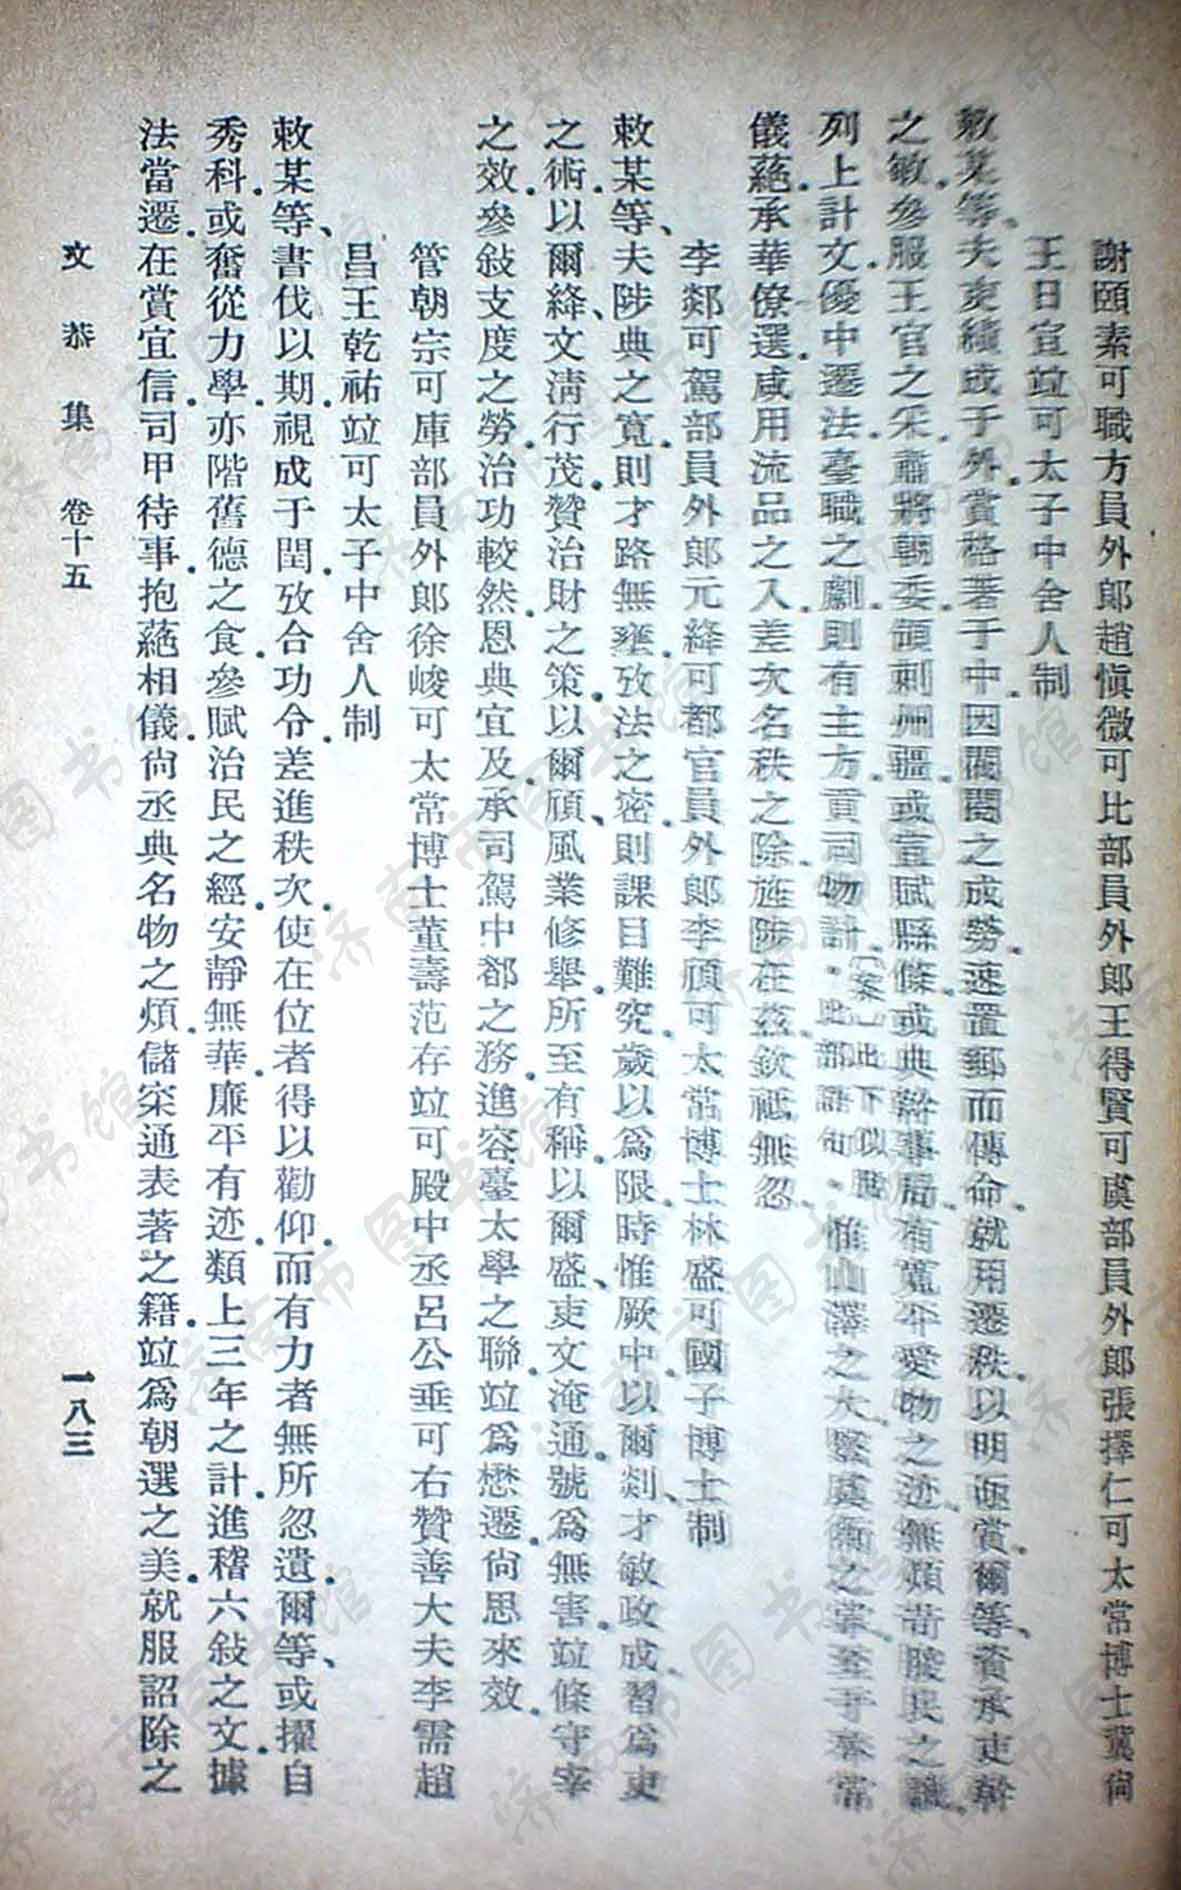 謝頤素可職方員外郎趙愼微可比部員外郎王得賢可虞部員外郎張擇仁可太常博士龔尙
王日宣竝可太子中舍人制
敕某等、夫吏績成于外。賞格著于中。因閥閱之成勞。速置郵而傳命。就用遷秩。以明亟賞。爾等、資承吏幹
之敏。參服王官之采。肅將朝委。領刺州疆。或宣賦縣條。或典幹事局。有寬平愛物之迹。無煩苛朘民之譏。
列上計文。優中遷法。臺職之劇。則有主方。貢司物計。〔案〕此下似脫比部語句。惟山澤之大。繄虞衡之掌。至于奉常
儀蕝。承華僚選。咸用流品之入。差次名秩之除。旌陟在茲。欽祗無忽。
李郯可駕部員外郎元絳可都官員外郎李頎可太常博士林盛可國子博士制
敕某等、夫陟典之寬。則才路無壅。攷法之密。則課目難究。歲以爲限。時惟厥中。以爾郯、才敏政成。習爲吏
之術。以爾絳、文淸行茂。贊治財之策。以爾頎、風業修舉。所至有稱。以爾盛、吏文淹通。號爲無害。竝條守宰
之效。參敍支度之勞。治功較然。恩典宜及。承司駕中都之務。進容臺太學之聯。竝爲懋遷。尙思來效。
管朝宗可庫部員外郎徐峻可太常博士董壽范存竝可殿中丞呂公垂可右贊善大夫李需趙
昌王乾祐竝可太子中舍人制
敕某等、書伐以期。視成于閏。攷合功令。差進秩次。使在位者得以勸仰。而有力者無所忽遺。爾等、或擢自
秀科。或奮從力學。亦階舊德之食。參賦治民之經。安靜無華。廉平有迹。類上三年之計。進稽六敍之文。據
法當遷。在賞宜信。司甲待事。抱蕝相儀。尙丞典名物之煩。儲寀通表著之籍。竝爲朝選之美。就服詔除之
文恭集 卷十五 一八三